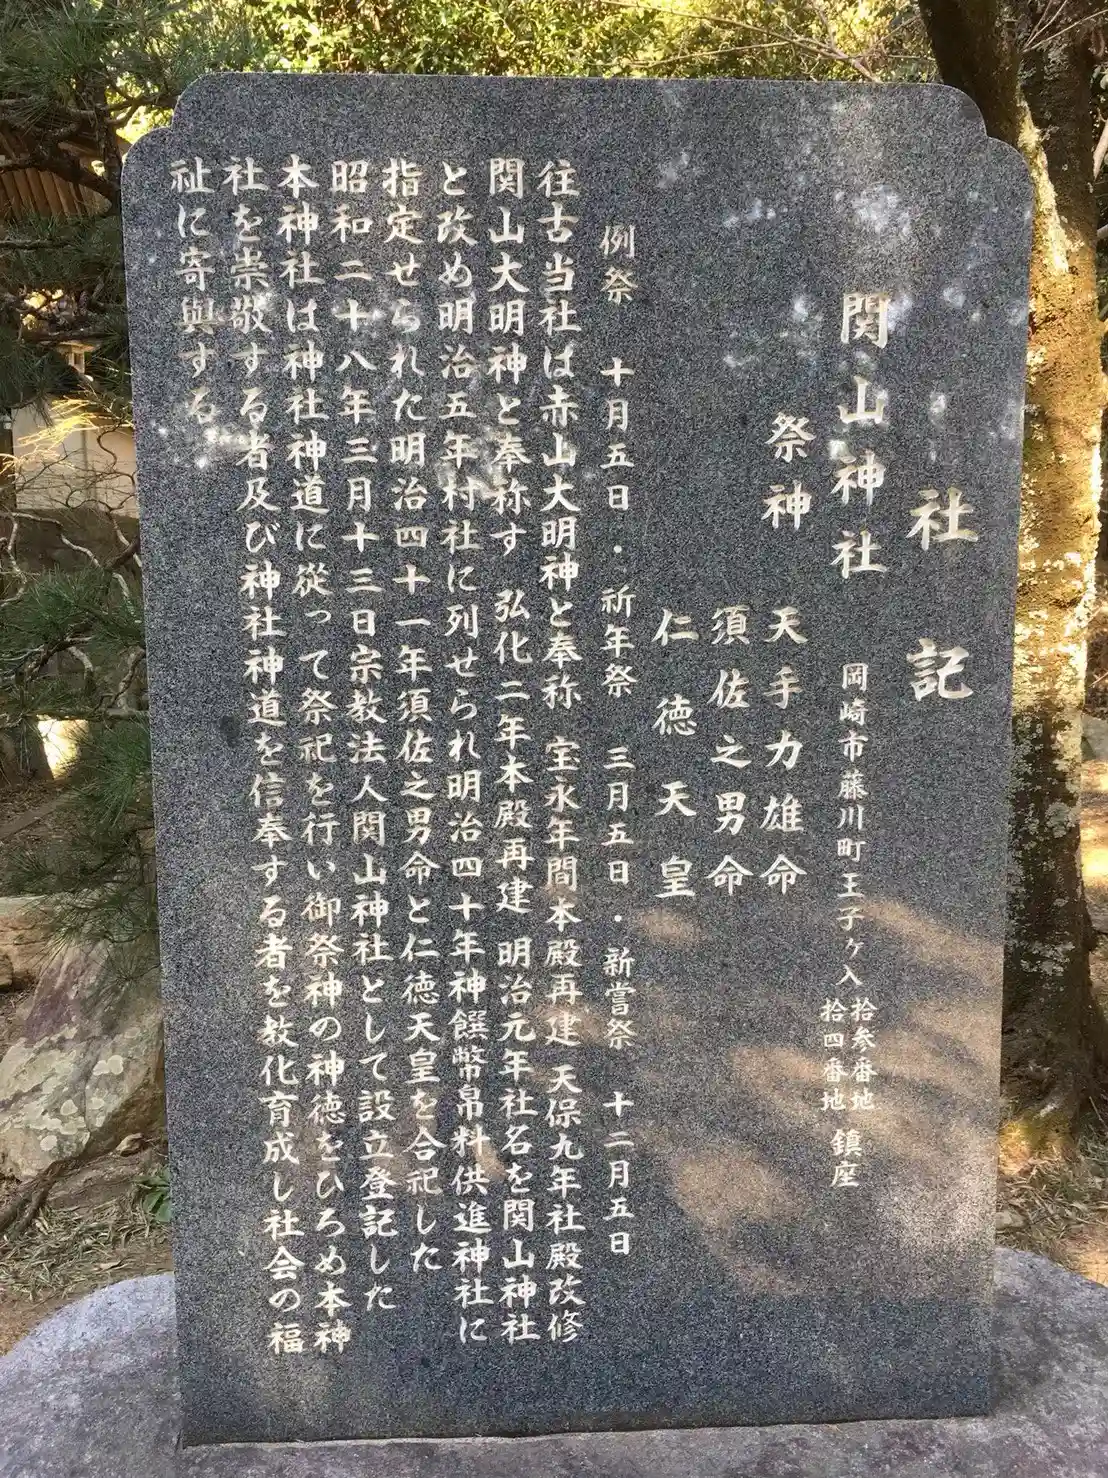 社記
関山神社 岡崎市藤川町王子ヶ入 拾参番地 拾四番地 鎮座
祭神 天手力雄命
須佐之男命
仁徳天皇
例祭 十月五日・祈年祭 三月五日・新嘗祭 十二月五日
往古当社は赤山大明神と奉称 宝永年間本殿再建 天保九年社殿改修
関山大明神と奉称す 弘化二年本殿再建 明治元年社名を関山神社
と改め明治五年村社に列せられ明治四十年神饌幣帛料供進神社に
指定せられた明治四十一年須佐之男命と仁徳天皇を合祀した
昭和二十八年三月十三日宗教法人関山神社として設立登記した
本神社は神社神道に従って祭祀を行い御祭神の神徳をひろめ本神
社を崇敬する者及び神社神道を信奉する者を教化育成し社会の福
祉に寄與する